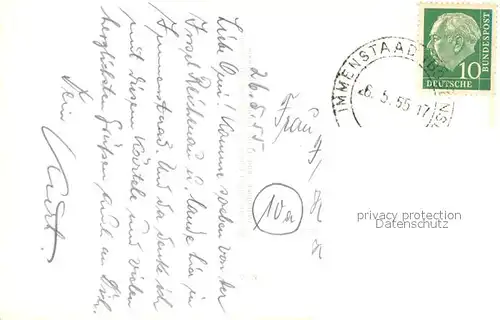 26.5.55
Liebe Omi! Komme soeben von der
Insel Reichenau u. lande hier in
Immenstaad. Und da denke ich
mit diesem Kärtele und vielen
herzlichsten Grüßen auch an Dich.
Dein Kurt.
Frau
10a
IMMENSTAAD
6.5.55.17
DEUTSCHE
BUNDESPOST
10
privacy protection
Datenschutz